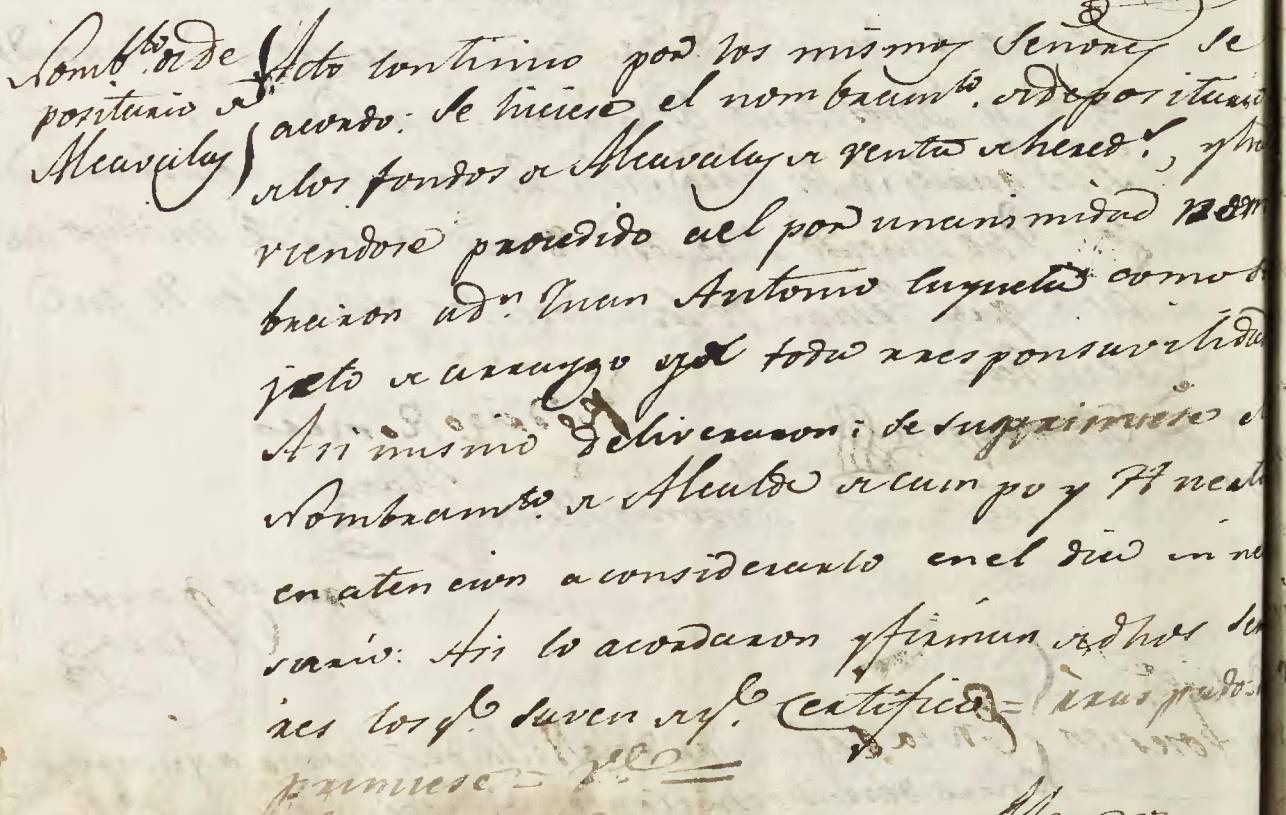 Nomb.to de de
positario de
Alcavalas
Acto continuo por los mismos Señores se
acordo: se hiciese el nombram.to de depositario
de los fondos de Alcavalas de venta de hered.s, y ha
viendose procedido a el por unanimidad nom
braron a d.n Juan Antonio Luqueta como su
jeto de arraygo y de toda rresponsavilidad
Asi mismo deliveraron: se suprimiese el
Nombram.to de Alcalde de campo y Huerta
en atencion a considerarlo en el dia inne
sario: Asi lo acordaron y firman de dhos Seño
res los q.e saven de q.e Certifico = rraspado = 
primiese = v.e =